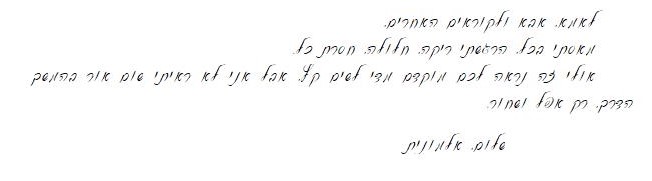 לאמא, אבא ולקוראים האחרים,
מאסתי בכל. הרגשתי ריקה, חלולה, חסרת כל.
אולי זה נראה לכם מוקדם מדי לשים קץ, אבל אני לא ראיתי שום אור בהמשך
הדרך, רק אפל ושחור.
שלום, אלמונית